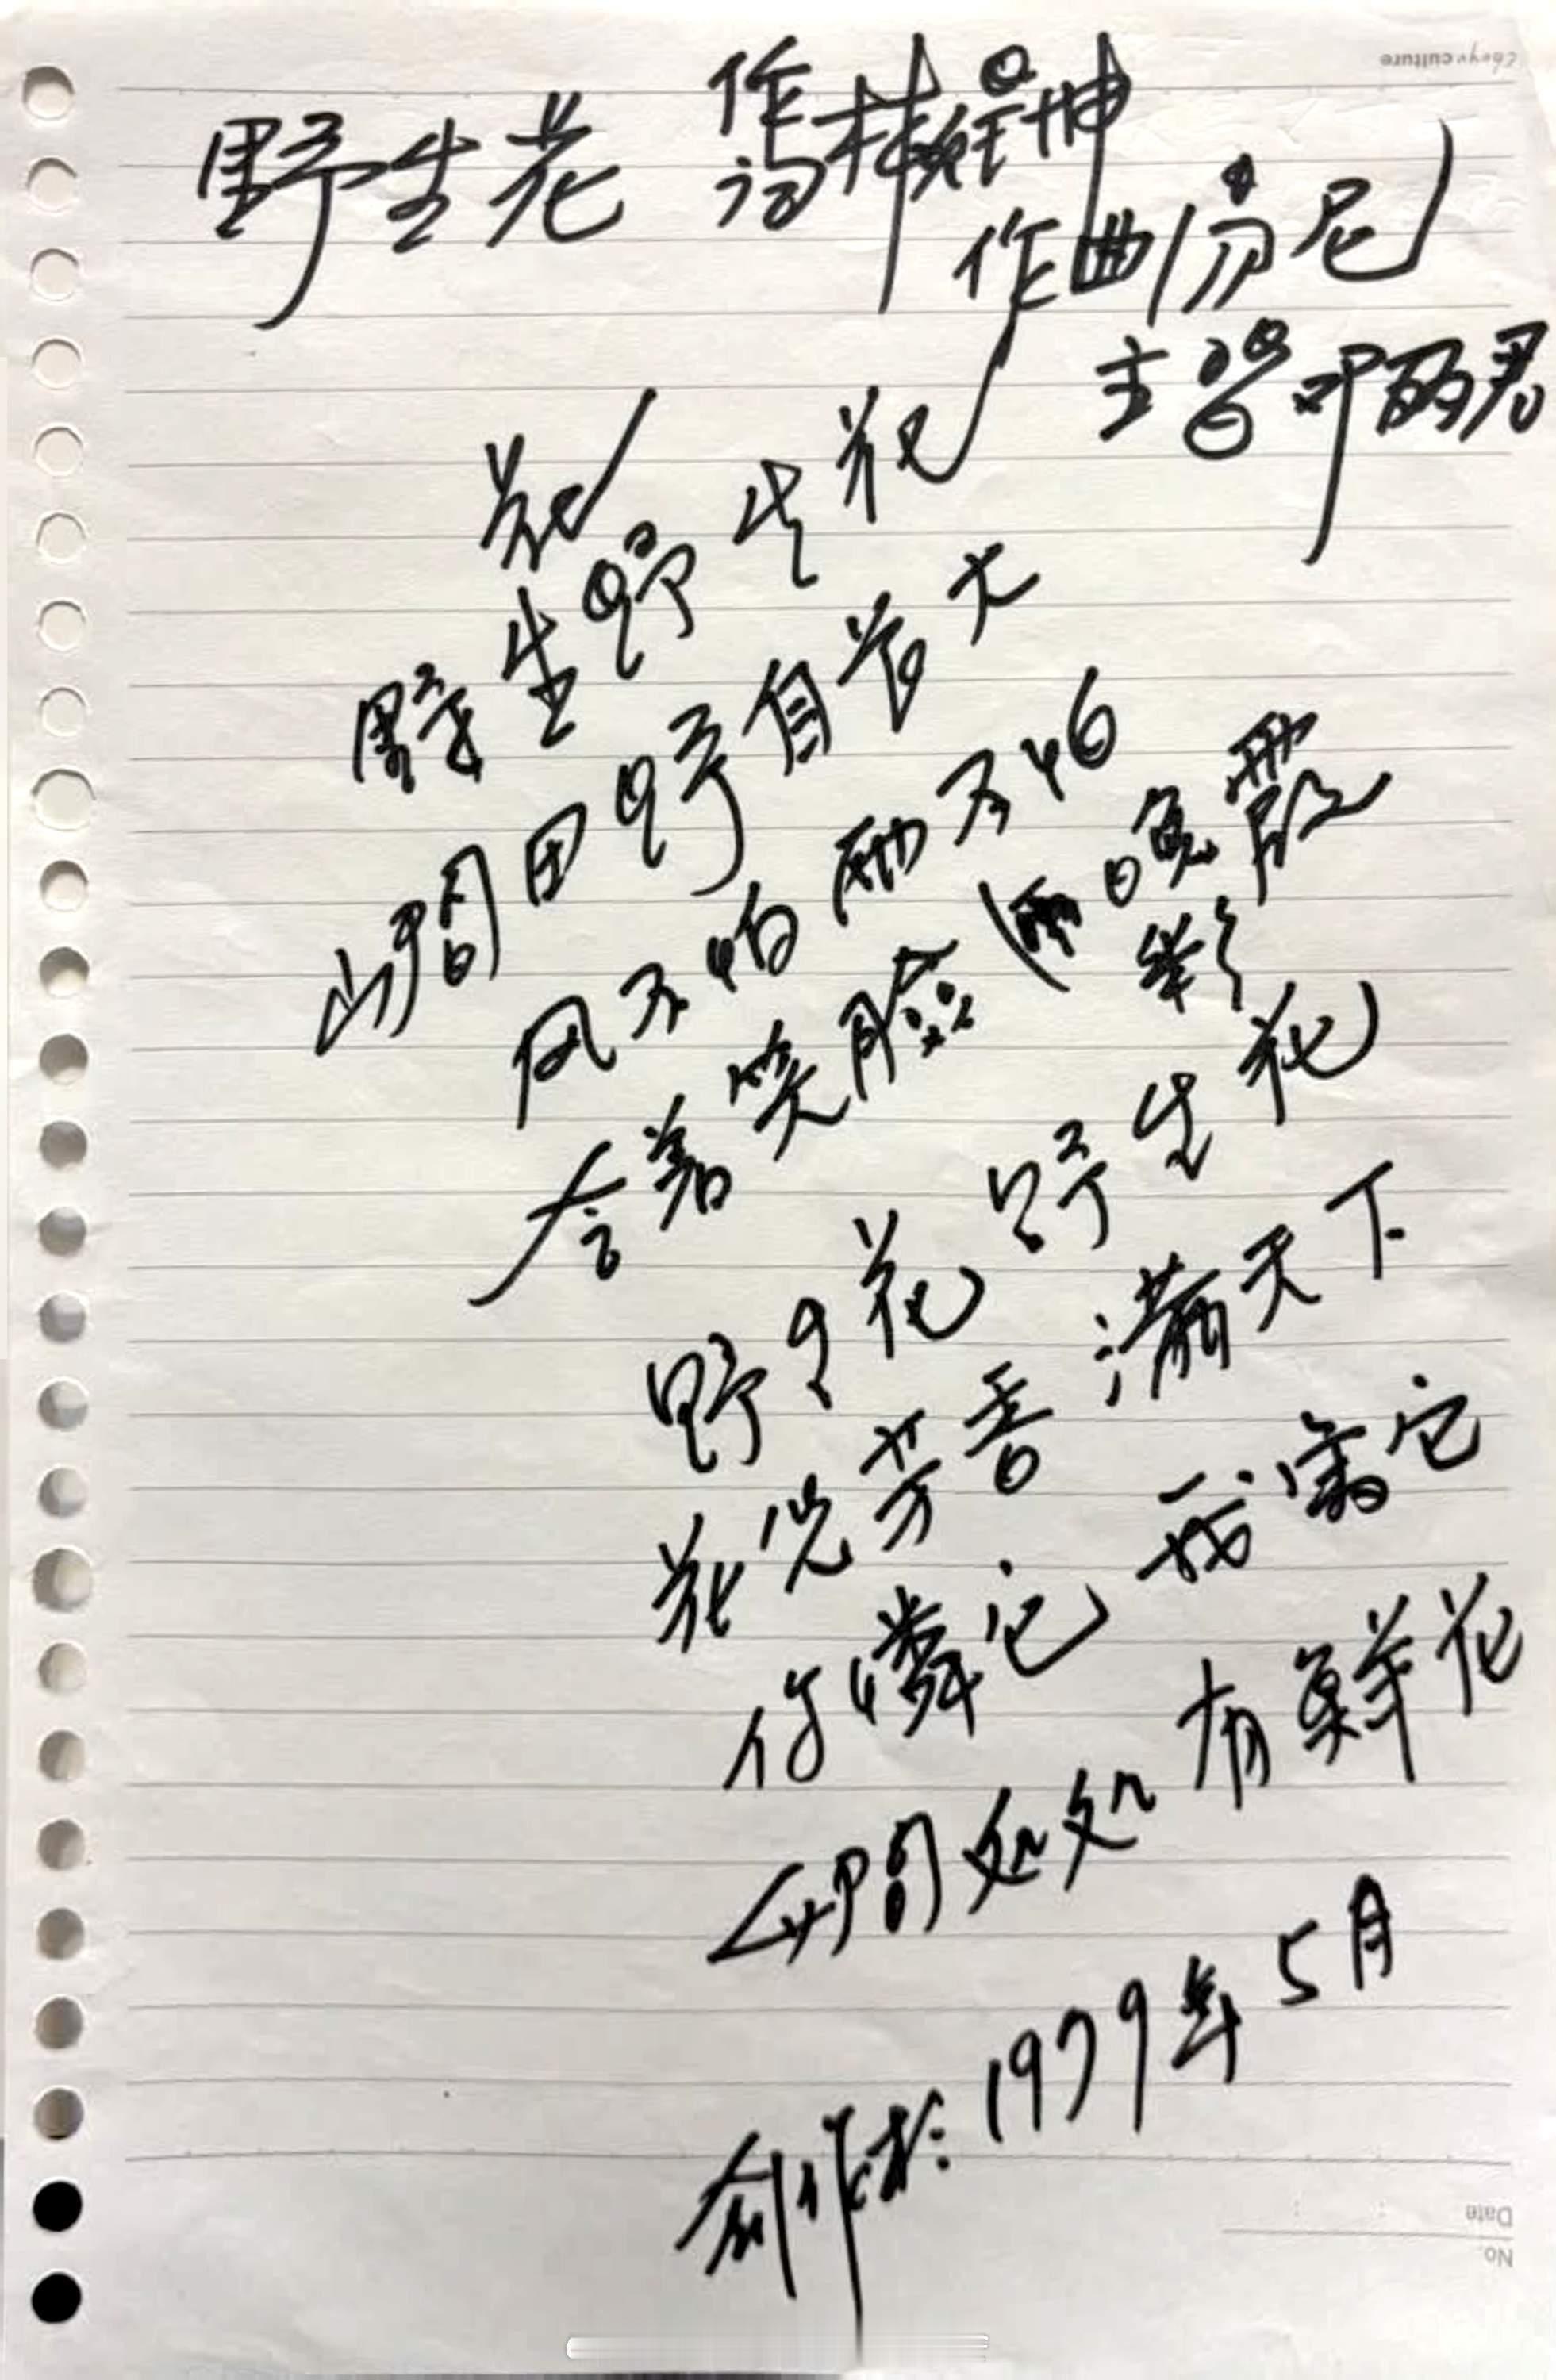 野生花 作词 林煌坤
作曲 尼
主唱 邓丽君
花
野生野生花
山間田野自
风不怕雨不怕
含着笑脸 晚霞
野生花野生花
花儿芳香满天下
你憐它 我 它
山間处处有鮮花
創作於：1979年5月
Date
No.